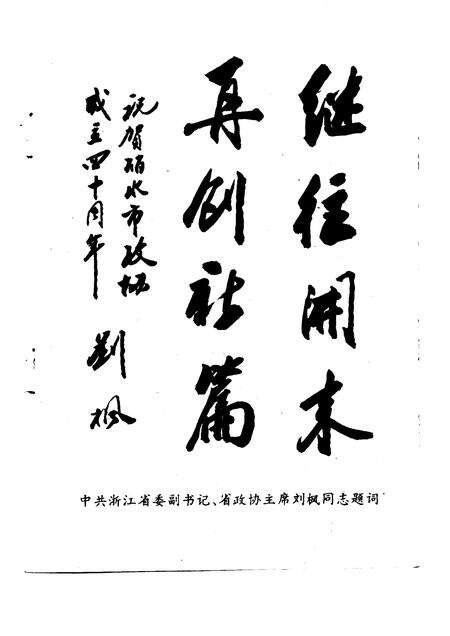 继往开来
再创新篇
祝贺丽水市政协
成立四十周年
刘枫
中共浙江省委副书记、省政协主席刘枫同志题词